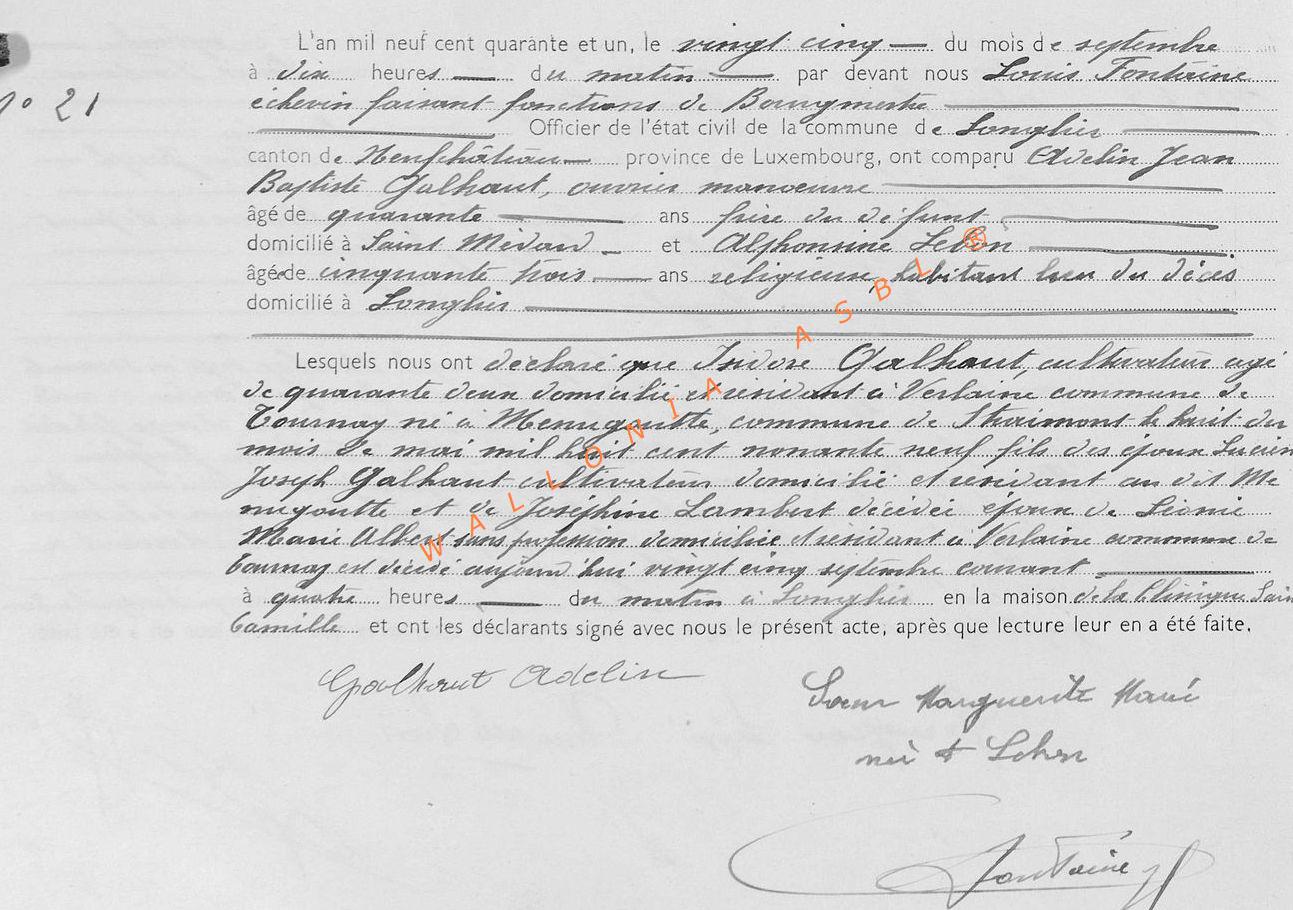 L'an mil neuf cent quarante et un, le vingt cinq du mois de septembre
à dix heures du matin par devant nous Louis Fontaine
N° 21
échevin faisant fonctions de Bourgmestre
Officier de l'état civil de la commune de Longlier
canton de Neufchâteau province de Luxembourg, ont comparu Adelin Jean
Baptiste Galhaut, ouvrier manoeuvre
âgé de quarante ans frère du défunt
domicilié à Saint Médard et Alphonsine Lebon
âgé de cinquante trois ans religieuse, habitant lieu du décès
domicilié à Longlier
Lesquels nous ont déclaré que Isidore Galhaut, cultivateur agé
de quarante deux domicilié et résidant à Verlaine commune de
Tournay né à Menugoutte, commune de Straimont le huit du
mois de mai mil huit cent nonante neuf fils des époux Lucien
Joseph Galhaut cultivateur domicilié et résidant au dit Me
nugoutte et de Joséphine Lambert décédée époux de Léonie
Marie Albert sans profession domiciliée et résidant à Verlaine commune de
Tournay est décédé aujourd'hui vingt cinq septembre courant
à quatre heures du matin à Longlier en la maison de la Clinique Sain
Camille et ont les déclarants signé avec nous le présent acte, après que lecture leur en a été faite.
Galhaut Adelin
Soeur Marguerite Marie
née Lebon
Fontaine
WALLONIA ASBL ®